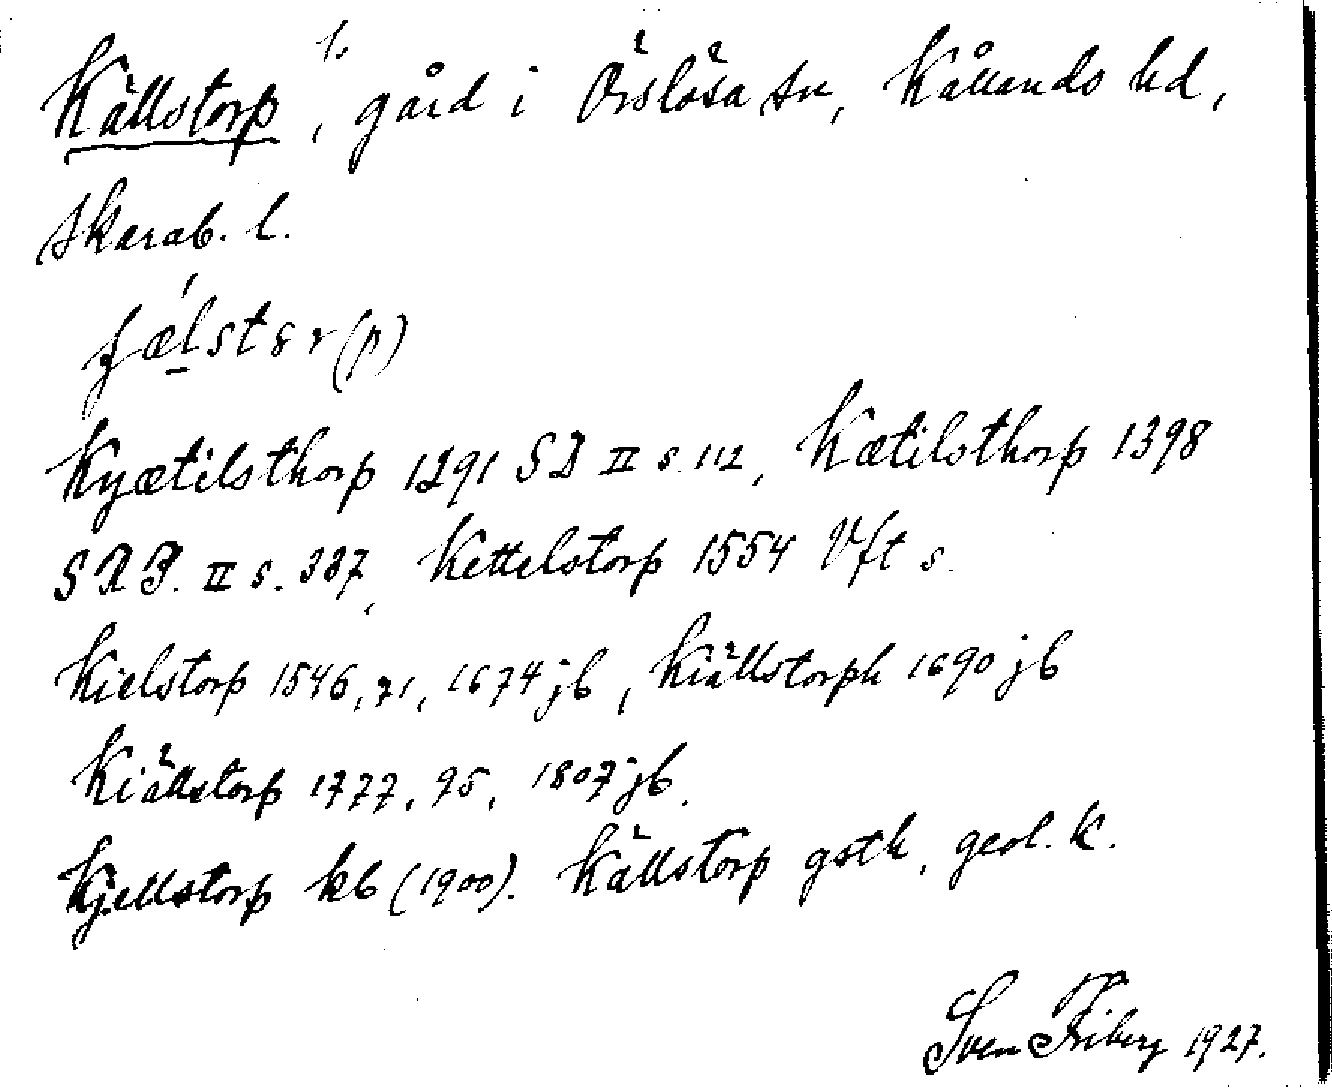 Källstorp 1., gård i Örslösa sn, Kållands hd,
Skarab. l.
fæ̀lstɞr(p)
Kyætilsthorp 1291 SD II s. 112, Kætilsthorp 1398
SRP. II s. 337, Kettelstorp 1554 Vft s.
Kielstorp 1546, 71, 1674 jb, Kiällstorph 1690 jb
Kiällstorp 1777, 95, 1807 jb.
Kjellstorp kb (1900). Källstorp gstk, geol. k.
Sven Friberg 1927.